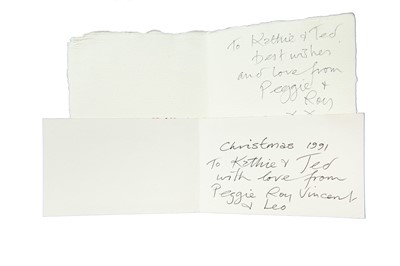 To Kathie & Ted.
best wishes
and love from
Peggie &
Roy
x x
Christmas 1991
To Kathie & Ted
with love from
Peggie Roy Vincent
& Leo